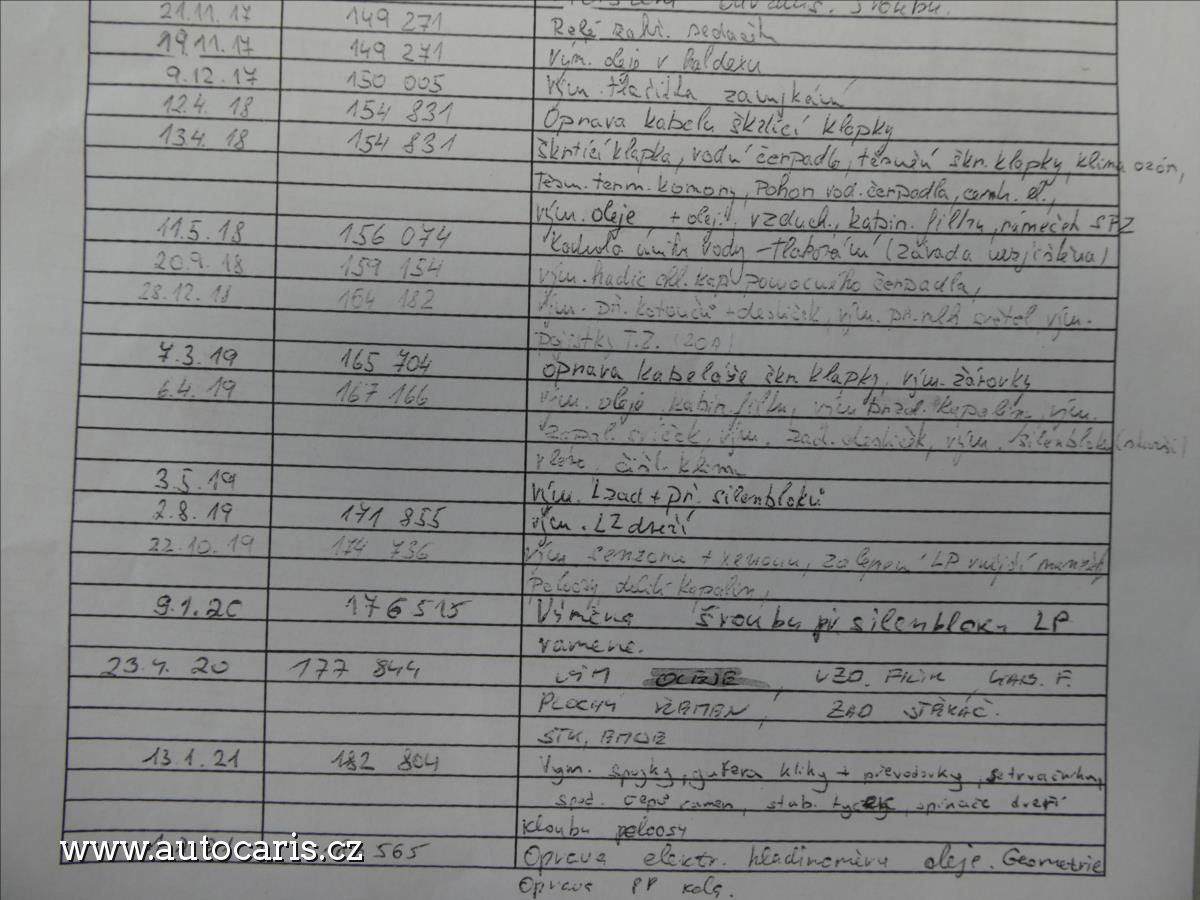 21.11.17 149 271 Relé sedaček
19.11.17 149 271 Vým. oleje v haldexu
9.12.17 150 005 Vým. tlačítka zamykání
12.4. 18 154 831 Oprava kabelu škrtící klapky
13.4. 18 154 831 Škrtící klapka, vodní čerpadlo, těsnění škr. klapky, klima ozón,
těsn. term. komory, Pohon vod. čerpadla,
vým. oleje + olej. vzduch. kabin. filtru, rámeček SPZ
11.5. 18 156 074 Kontrola úniku vody - tlakování (závada nezjištěna)
20.9. 18 159 154 vým. hadic pomocného čerpadla,
28.12. 18 164 182 Vým. př. kotoučů + destiček, vým. světel, vým.
pojistky T.Z. (20A)
7.3. 19 165 704 oprava kabeláže škr. klapky, vým. žárovky
6.4. 19 167 166 vým. oleje, kabin. filtru, vým. brzd. kapalin, vým.
zapal. svíček, vým. zad. destiček, vým. silenbloku
čišt. klima
3.5. 19 vým. Lzad + př. silenbloků
2.8. 19 171 855 vým. LZ dveří
22.10. 19 174 736 vým senzoru + xenonu, zalepení LP vnější
poloosy kapalin,
9.1. 20 176 515 Výměna šroubu př silenbloku LP
ramene.
23.4. 20 177 844 VÝM OLEJE, VZD. FILTR, KAB. F.
PLOCHÝ ŘEMEN, ZAD STĚRAČ.
STK, EMISE
13.1. 21 182 804 Vym. spojky, gufera kliky + převodovky, setrvačníku,
spod. čepů ramen, stab. tyček, spínače dveří
kloubu poloosy
565 Oprava elektr. hladinoměru oleje. Geometrie
Oprava PP kola.
www.autocaris.cz